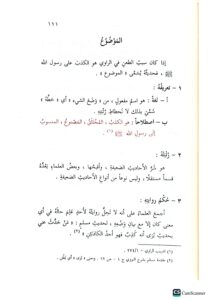 ١١١
المَوْضُوعُ
إذا كان سببُ الطعنِ في الراوي هو الكذبَ على رسول الله
ﷺ ، فحديثُه يُسَمَّى « الموضوع » .
١ – تعريفُهُ :
أ – لغةً : هو اسمُ مفعولٍ ، من « وَضَعَ الشيءَ » أي « حَطَّهُ »
سُمِّيَ بذلك لانحطاطِ رُتْبَتِهِ .
ب – اصطلاحاً : هو الكَذِبُ ، المُخْتَلَقُ ، المَصْنُوعُ ، المنسوبُ
إلى رسول الله ﷺ (١) .
٢ – رُتْبَتُهُ :
هو شَرُّ الأحاديثِ الضعيفةِ ، وأقبحُها ، وبعضُ العلماءِ يَعُدُّهُ
قسماً مستقلاً ، وليس نوعاً من أنواعِ الأحاديثِ الضعيفةِ .
٣ – حُكْمُ روايتِهِ :
أجمعَ العلماءُ على أنه لا تَحِلُّ روايتُه لأحدٍ عَلِمَ حالَه في أيِّ
معنى كان إلا مع بيانِ وَضْعِهِ ، لحديثِ مسلم : « مَنْ حَدَّثَ عني
بحديثٍ يُرَى أنه كَذِبٌ فهو أحدُ الكاذِبَيْنِ » (٢) .
(١) تدريب الراوي –
(٢) مقدمة مسلم بشرح النووي ج ١ –
CS CamScanner